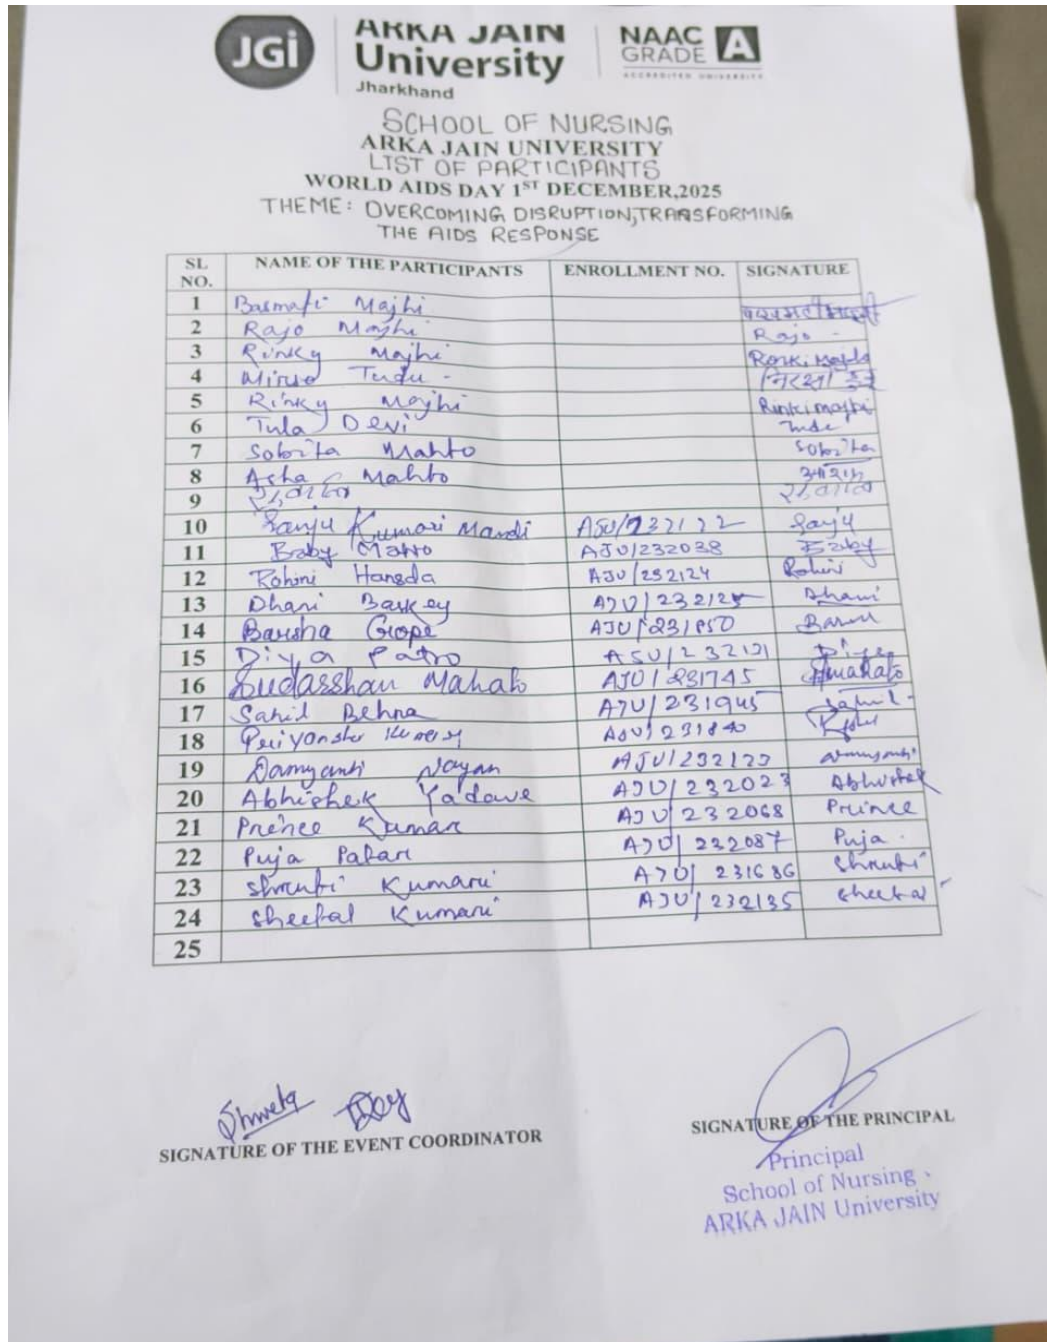 JGi
ARKA JAIN
University
Jharkhand
NAAC
GRADE A
ACCREDITED UNIVERSITY
SCHOOL OF NURSING
ARKA JAIN UNIVERSITY
LIST OF PARTICIPANTS
WORLD AIDS DAY 1ST DECEMBER,2025
THEME: OVERCOMING DISRUPTION,TRANSFORMING
THE AIDS RESPONSE
SL NO. NAME OF THE PARTICIPANTS ENROLLMENT NO. SIGNATURE
1 Basmati Majhi
2 Rajo Majhi Rajo
3 Rinky Majhi
4 Tudu
5 Rinky Majhi Rinki majhi
6 Tula Devi
7 Sobita Mahto Sobita
8 Asha Mahto
9
10 Sanju Kumari Mardi AJU/232122 Sanju
11 Baby Mahto AJU/232038 Baby
12 Rohini Hansda AJU/232124 Rohini
13 Dhani Baskey AJU/232125 Dhani
14 Barsha Gope AJU/231850
15 Diya Patro AJU/232121 Diya
16 Sudarshan Mahato AJU/231745 SMahato
17 Sahil Behra AJU/231945 Sahil
18 Priyanshu Kumar AJU/231840
19 Damyanti Nayan Damyanti
20 Abhishek Yadave AJU/232023 Abhishek
21 Prince Kumar AJU/232068 Prince
22 Puja Patari AJU/232087 Puja
23 Shruti Kumari AJU/231686 Shruti
24 Sheetal Kumari AJU/232135 Sheetal
25
Shweta Dey
SIGNATURE OF THE EVENT COORDINATOR
SIGNATURE OF THE PRINCIPAL
Principal
School of Nursing
ARKA JAIN University